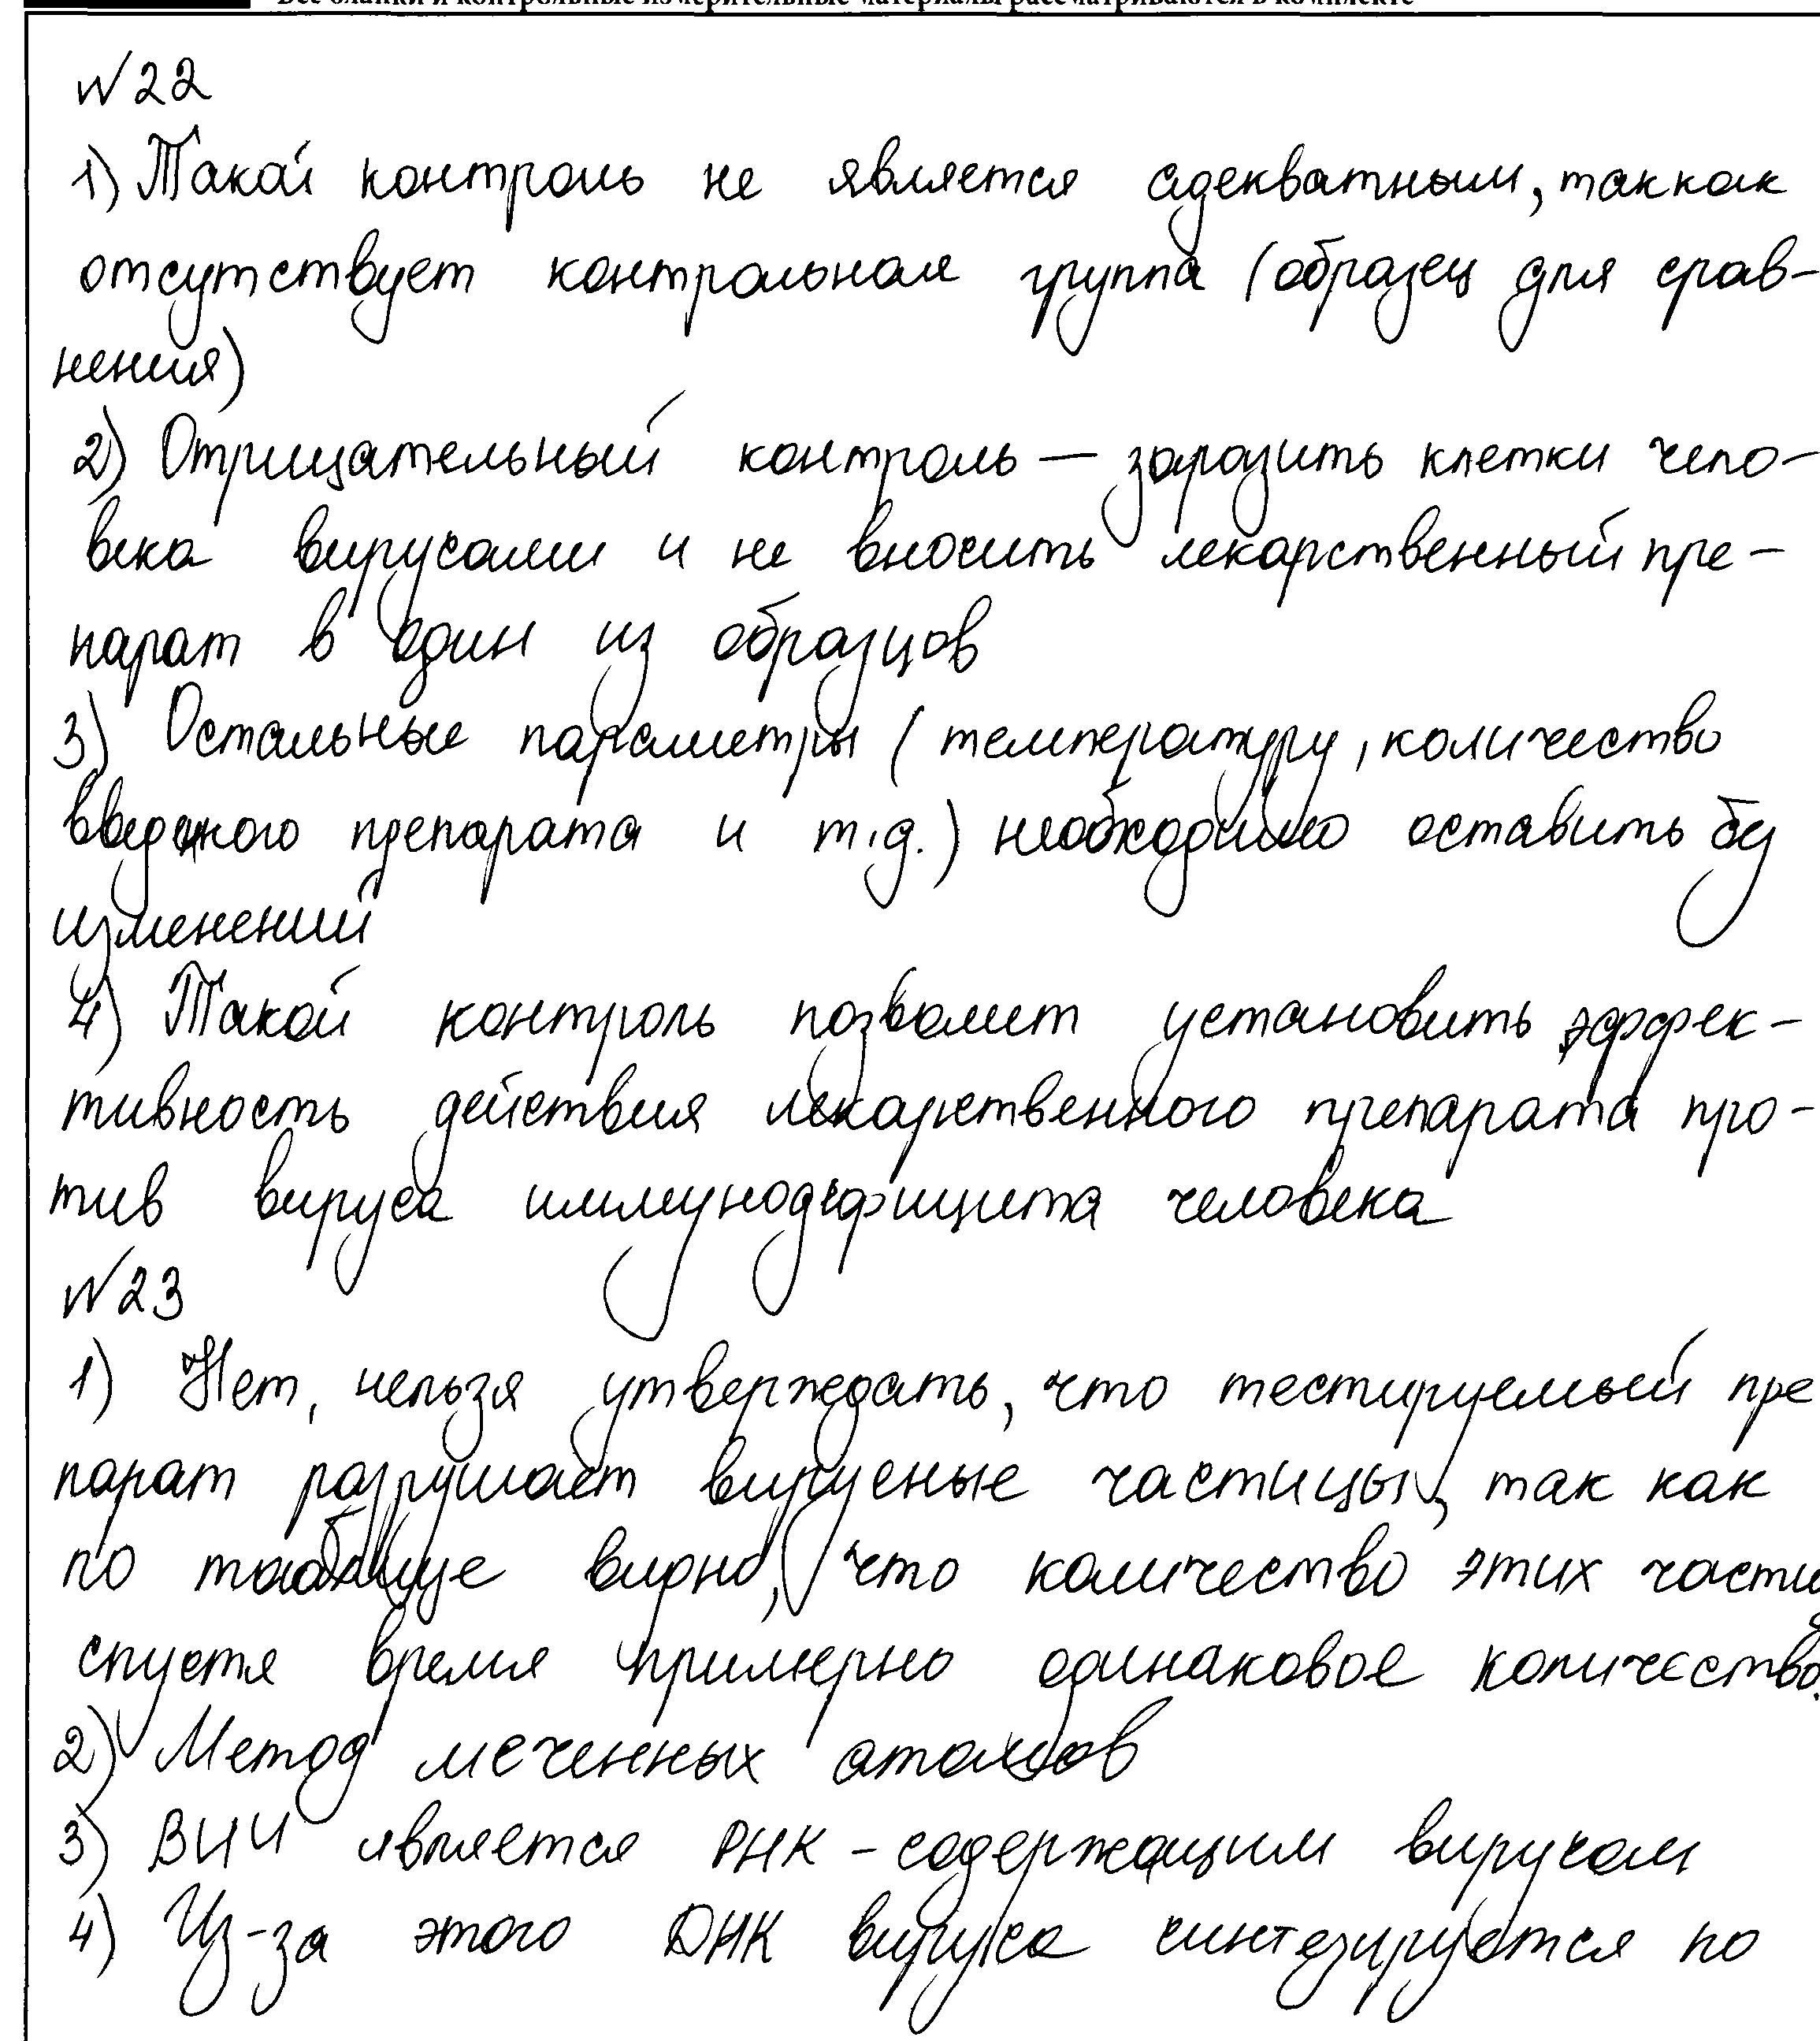 Все бланки и контрольные измерительные материалы рассматриваются в комплекте
№22
1) Такой контроль не является адекватным, так как
отсутствует контрольная группа (образец для срав-
нения)
2) Отрицательный контроль — заразить клетки чело-
века вирусами и не вносить лекарственный пре-
парат в один из образцов
3) Остальные параметры (температуру, количество
введеного препарата и т.д.) необходимо оставить без
изменений
4) Такой контроль позволит установить эффек-
тивность действия лекарственного препарата про-
тив вируса иммунодефицита человека
№23
1) Нет, нельзя утверждать, что тестируемый пре
парат разрушает вирусные частицы, так как
по таблице видно, что количество этих частиц
спустя время примерно одинаковое количество.
2) Метод меченных атомов
3) ВИЧ является РНК-содержащим вирусом
4) Из-за этого ДНК вируса синтезируется по